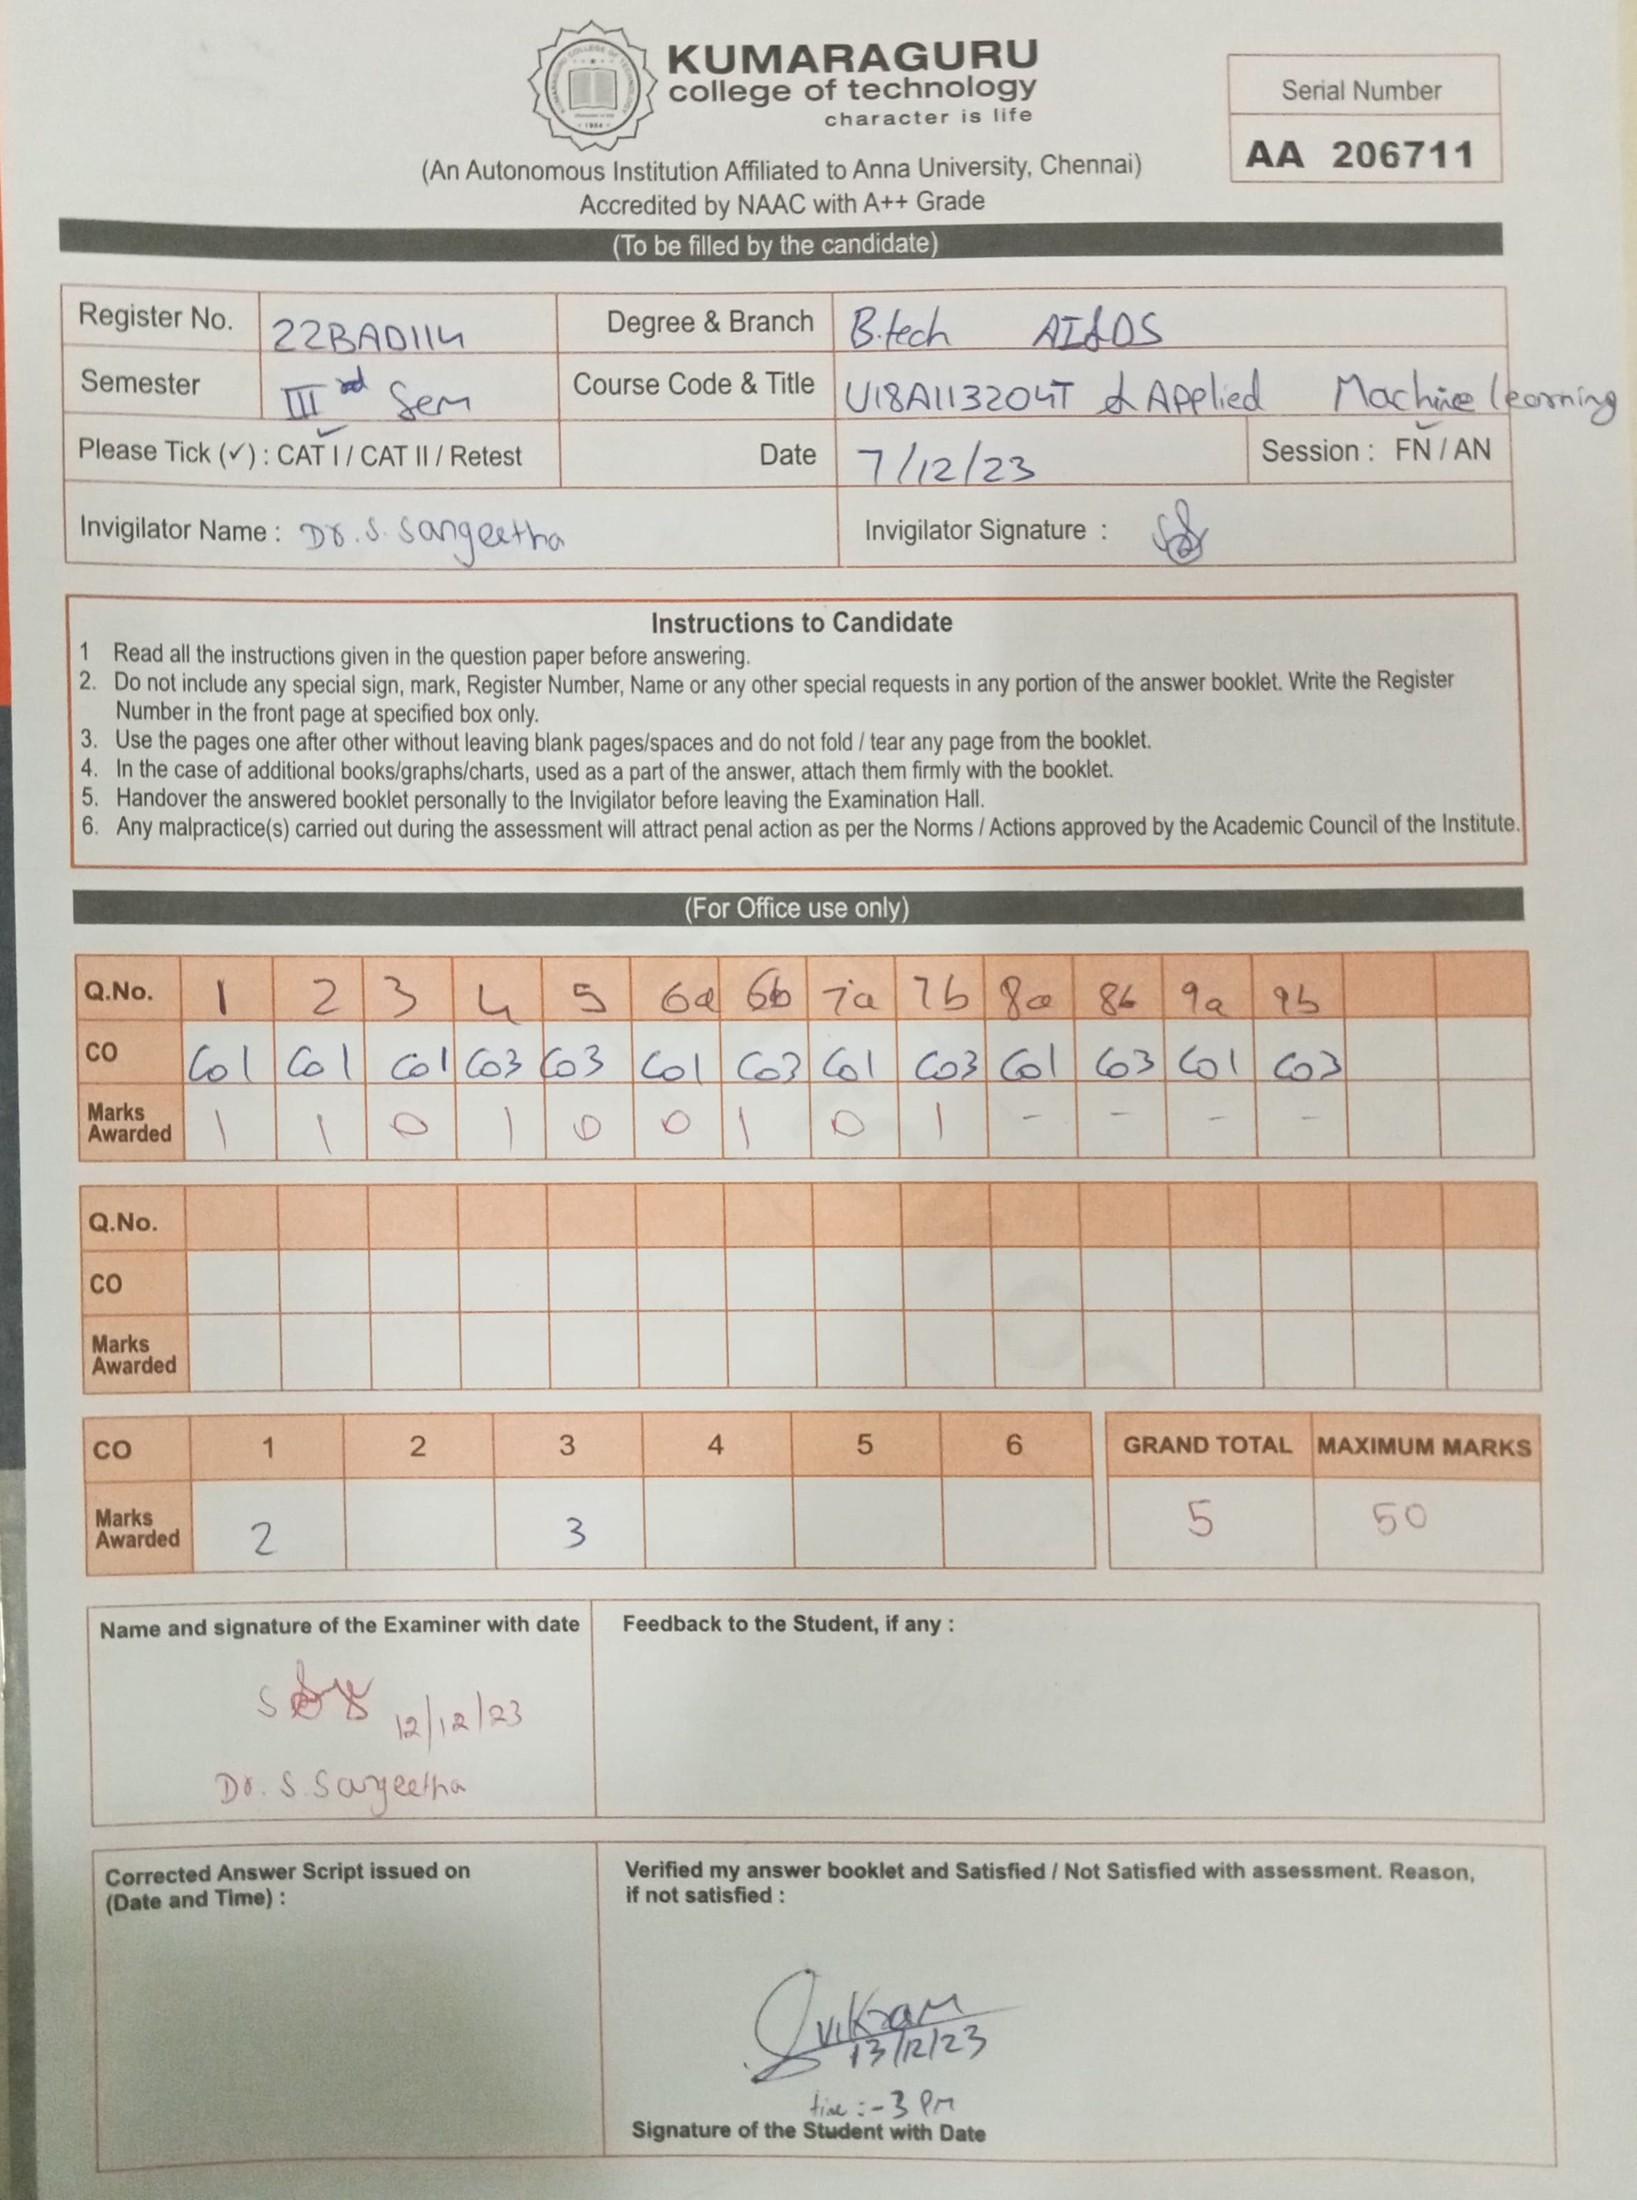 KUMARAGURU
college of technology
character is life
Serial Number
AA 206711
(An Autonomous Institution Affiliated to Anna University, Chennai)
Accredited by NAAC with A++ Grade
(To be filled by the candidate)
Register No. 22BAD114 Degree & Branch B.tech AI&DS
Semester III rd Sem Course Code & Title U18AII3204T & Applied Machine learning
Please Tick (✓) : CAT I / CAT II / Retest Date 7/12/23 Session : FN / AN
Invigilator Name : Dr. S. Sangeetha Invigilator Signature :
Instructions to Candidate
1 Read all the instructions given in the question paper before answering.
2. Do not include any special sign, mark, Register Number, Name or any other special requests in any portion of the answer booklet. Write the Register
Number in the front page at specified box only.
3. Use the pages one after other without leaving blank pages/spaces and do not fold / tear any page from the booklet.
4. In the case of additional books/graphs/charts, used as a part of the answer, attach them firmly with the booklet.
5. Handover the answered booklet personally to the Invigilator before leaving the Examination Hall.
6. Any malpractice(s) carried out during the assessment will attract penal action as per the Norms / Actions approved by the Academic Council of the Institute.
(For Office use only)
Q.No. 1 2 3 4 5 6a 6b 7a 7b 8a 8b 9a 9b
CO Co1 Co1 Co1 Co3 Co3 Co1 Co3 Co1 Co3 Co1 Co3 Co1 Co3
Marks Awarded 1 1 0 1 0 0 1 0 1 - - - -
Q.No.
CO
Marks Awarded
CO 1 2 3 4 5 6 GRAND TOTAL MAXIMUM MARKS
Marks Awarded 2 3 5 50
Name and signature of the Examiner with date Feedback to the Student, if any :
12/12/23
Dr. S. Sangeetha
Corrected Answer Script issued on
(Date and Time) :
Verified my answer booklet and Satisfied / Not Satisfied with assessment. Reason,
if not satisfied :
Vikram
13/12/23
time :- 3 PM
Signature of the Student with Date